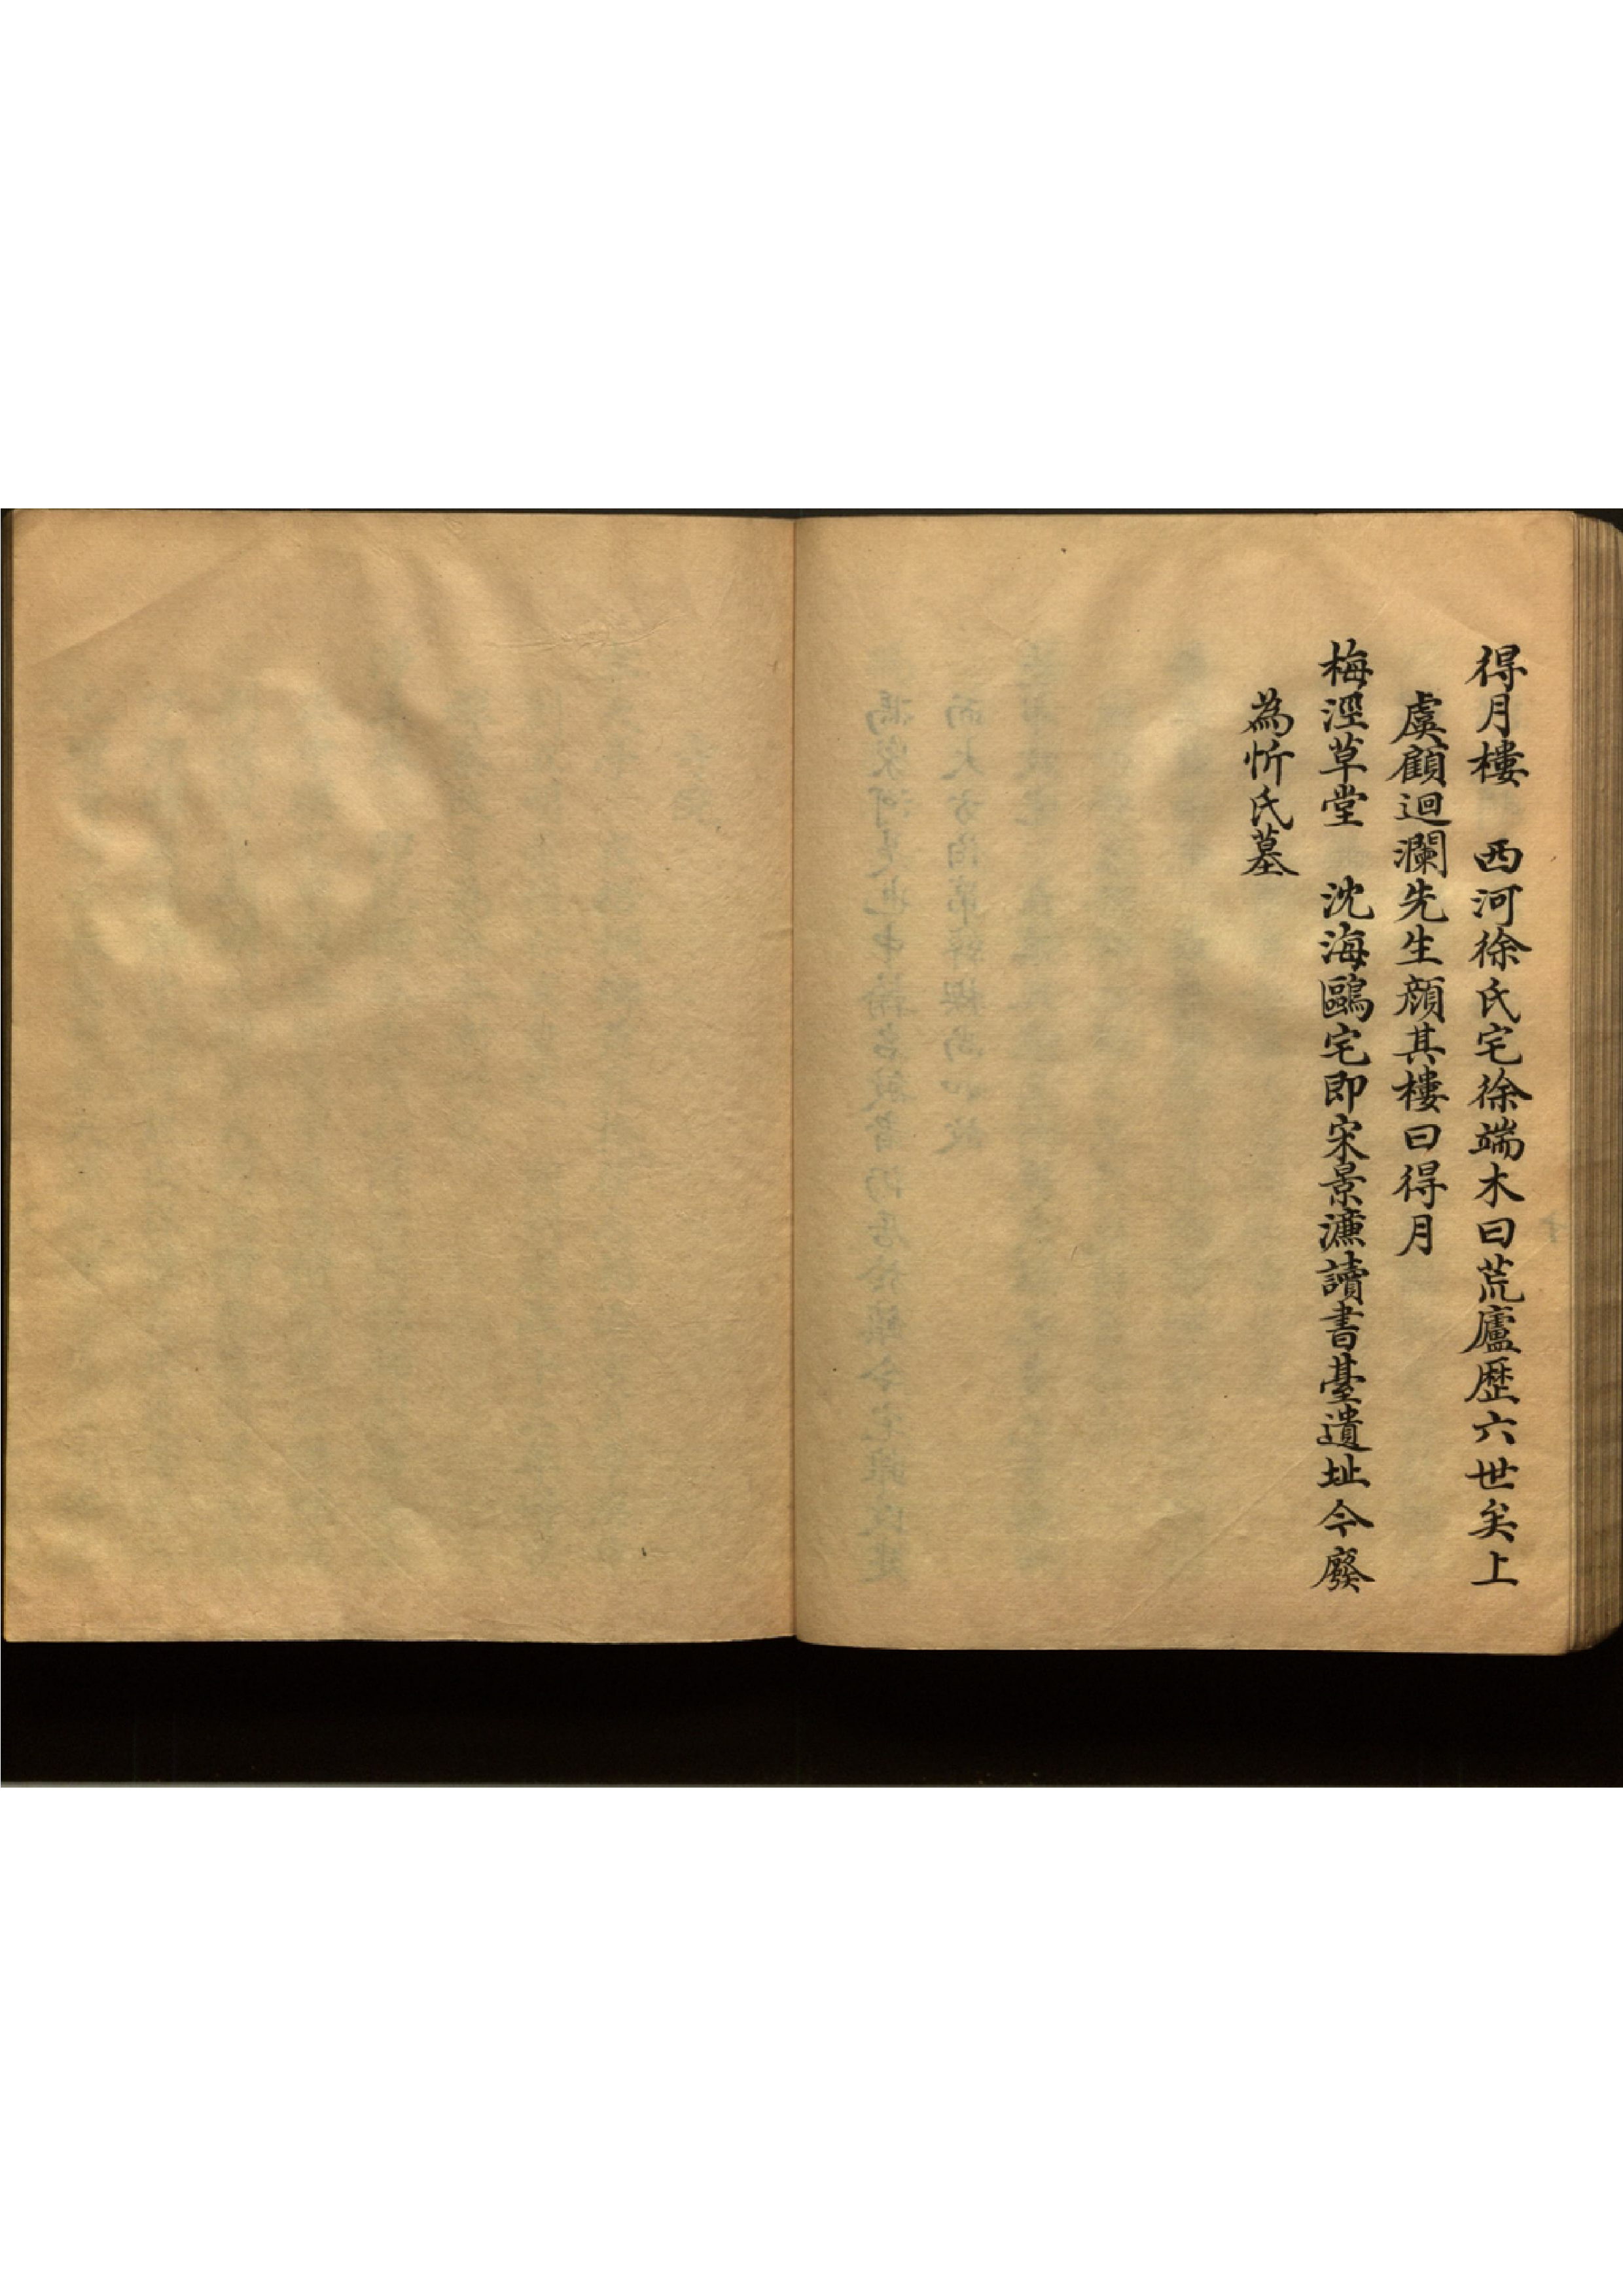 得月樓　西河徐氏宅徐端木曰荒廬歷六世矣上
虞顧迴瀾先生顏其樓曰得月
梅涇草堂　沈海鷗宅即宋景濂讀書臺遺址今廢
為忻氏墓